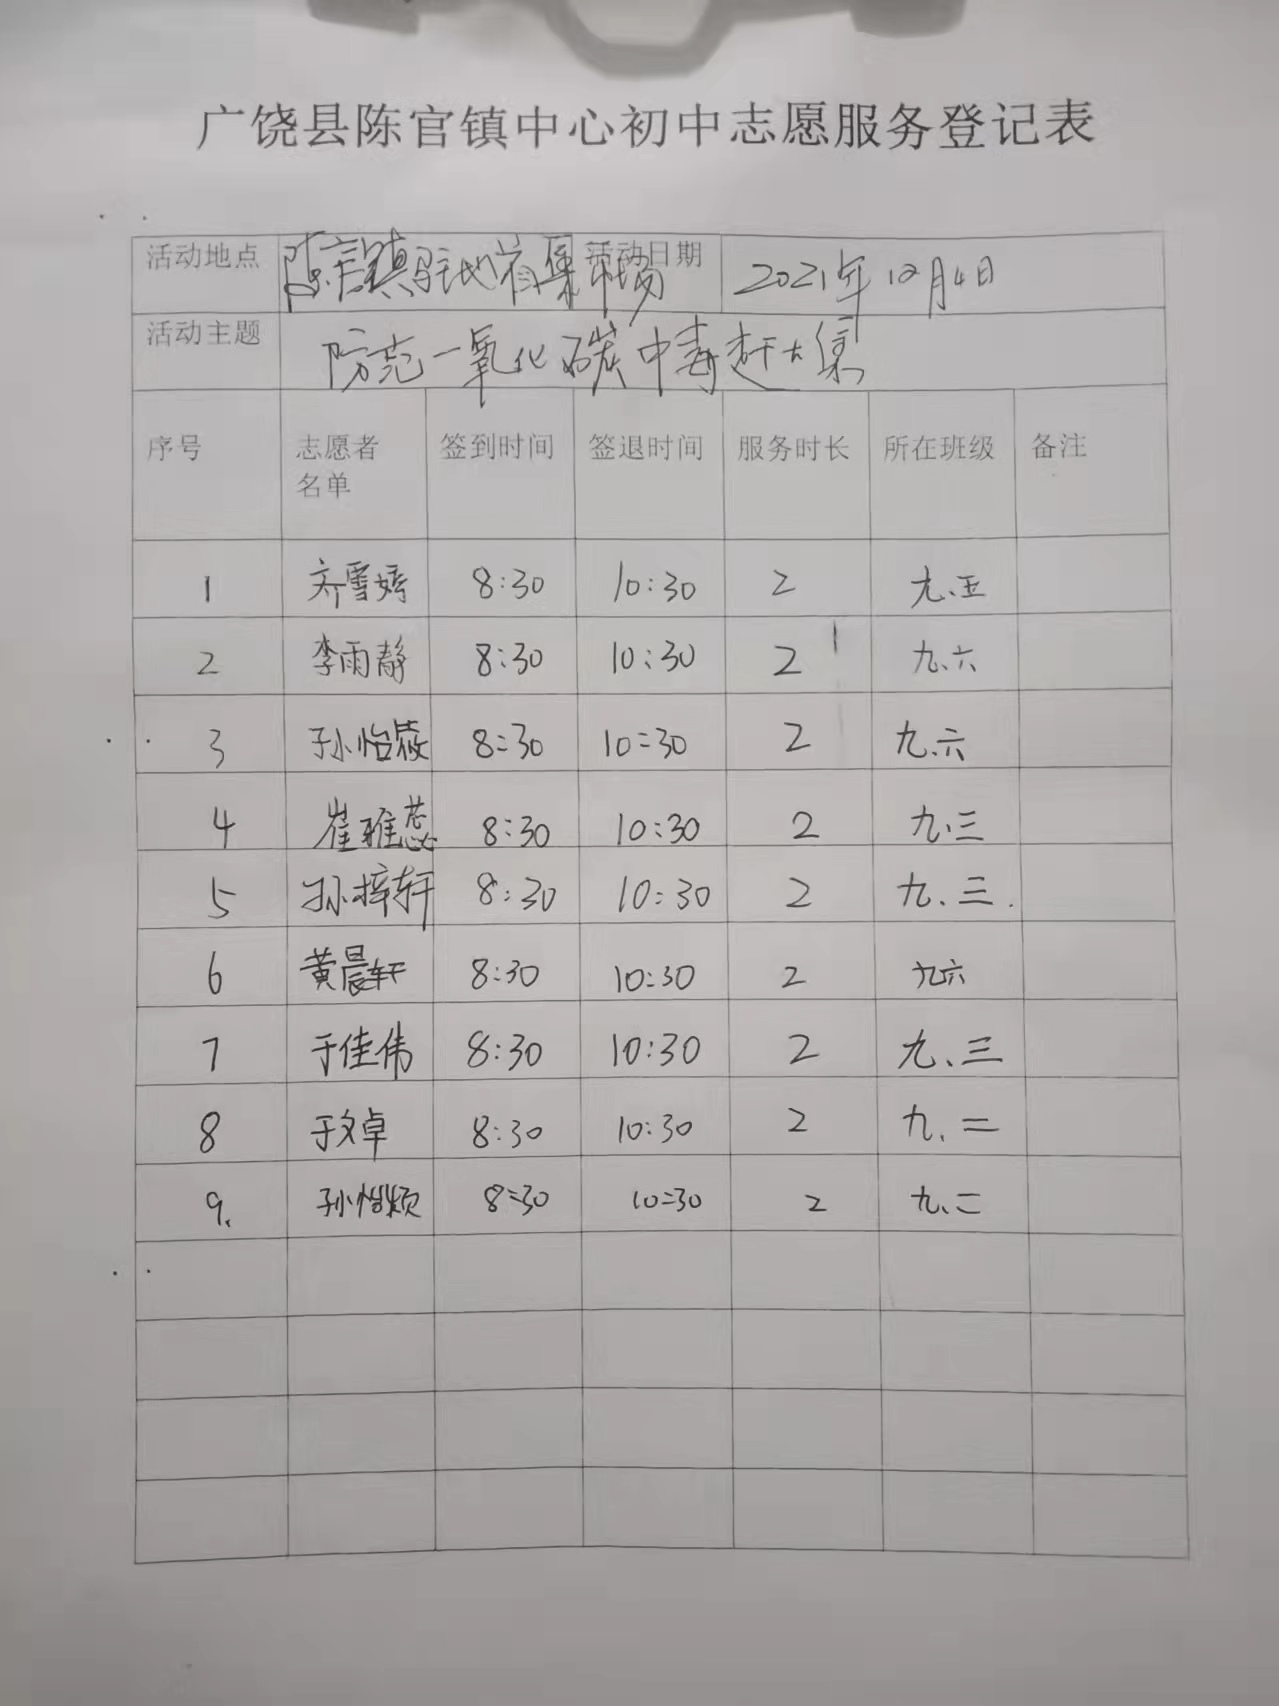 广饶县陈官镇中心初中志愿服务登记表
活动地点 陈官镇驻地省集市场 活动日期 2021年12月4日
活动主题 防范一氧化碳中毒赶大集
序号 志愿者名单 签到时间 签退时间 服务时长 所在班级 备注
1 齐雪婷 8:30 10:30 2 九、五
2 李雨静 8:30 10:30 2 九、六
3 孙怡筱 8:30 10:30 2 九、六
4 崔雅蕊 8:30 10:30 2 九、三
5 孙梓轩 8:30 10:30 2 九、三.
6 黄晨轩 8:30 10:30 2 九六
7 于佳伟 8:30 10:30 2 九、三
8 于文卓 8:30 10:30 2 九、二
9. 孙怡颖 8:30 10:30 2 九、二